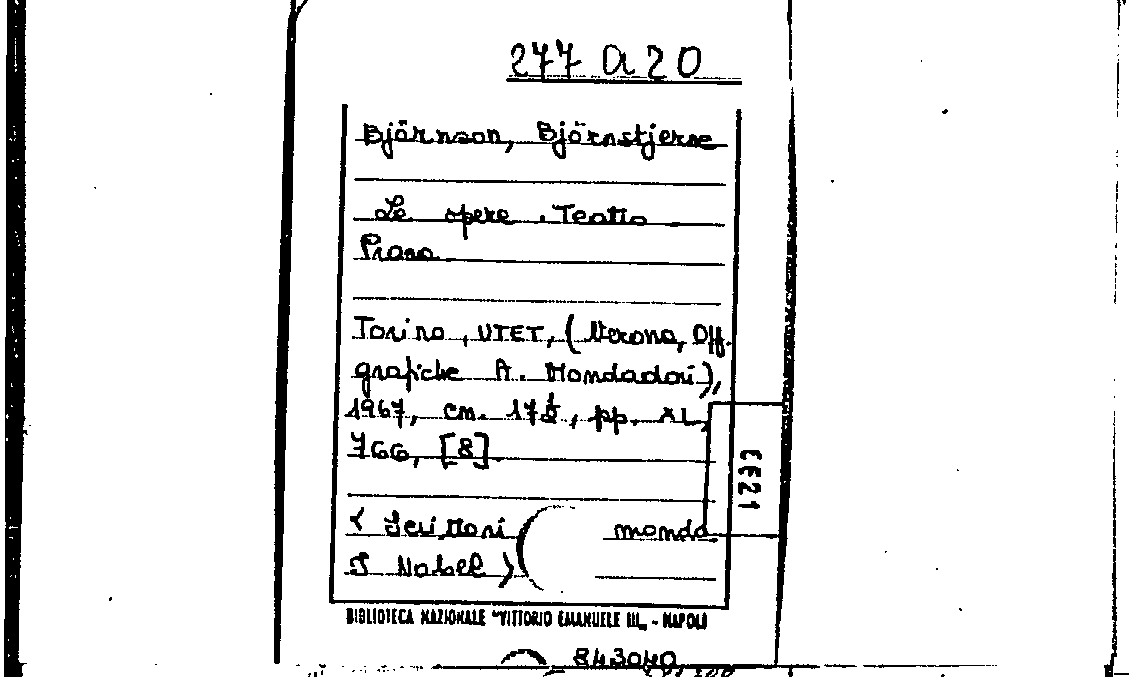 277 A 20
Björnson, Björnstjerne
Le opere. Teatro
Prosa
Torino, UTET, (Verona, Off.
grafiche A. Mondadori),
1967, cm. 17½, pp. XL,
766, [8]
< Scrittori mondo.
I Nobel >
EE21
BIBLIOTECA NAZIONALE "VITTORIO EMANUELE III" - NAPOLI
843040